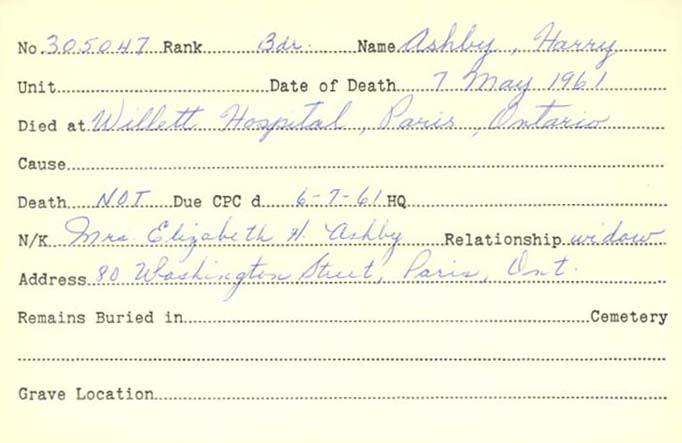 No. 305047 Rank Bdr. Name Ashby, Harry
Unit Date of Death 7 May 1961
Died at Willett Hospital, Paris, Ontario
Cause
Death NOT Due CPC d 6-7-61 HQ
N/K Mrs. Elizabeth H. Ashby Relationship widow
Address 80 Washington Street, Paris, Ont.
Remains Buried in Cemetery
Grave Location